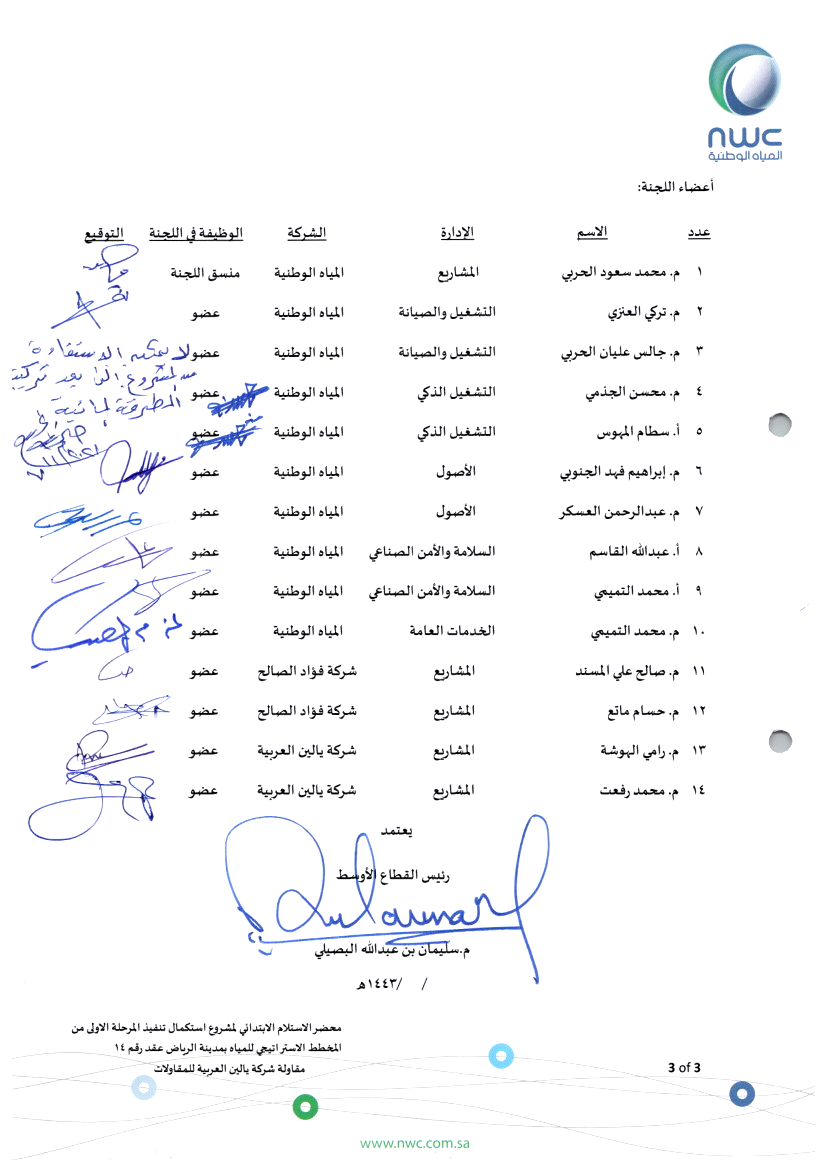 nwc
المياه الوطنية
أعضاء اللجنة:
عدد الاسم الإدارة الشركة الوظيفة في اللجنة التوقيع
١ م. محمد سعود الحربي المشاريع المياه الوطنية منسق اللجنة
٢ م. تركي العنزي التشغيل والصيانة المياه الوطنية عضو
٣ م. جالس عليان الحربي التشغيل والصيانة المياه الوطنية عضو لا يمكن الاستفادة
٤ م. محسن الجذمي التشغيل الذكي المياه الوطنية عضو
٥ أ. سطام المهوس التشغيل الذكي المياه الوطنية عضو
٦ م. إبراهيم فهد الجنوبي الأصول المياه الوطنية عضو
٧ م. عبدالرحمن العسكر الأصول المياه الوطنية عضو
٨ أ. عبدالله القاسم السلامة والأمن الصناعي المياه الوطنية عضو
٩ أ. محمد التميمي السلامة والأمن الصناعي المياه الوطنية عضو
١٠ م. محمد التميمي الخدمات العامة المياه الوطنية عضو
١١ م. صالح علي المسند المشاريع شركة فؤاد الصالح عضو
١٢ م. حسام ماتع المشاريع شركة فؤاد الصالح عضو
١٣ م. رامي الهوشة المشاريع شركة يالين العربية عضو
١٤ م. محمد رفعت المشاريع شركة يالين العربية عضو
يعتمد
رئيس القطاع الأوسط
م.سليمان بن عبدالله البصيلي
/ /١٤٤٣هـ
محضر الاستلام الابتدائي لمشروع استكمال تنفيذ المرحلة الاولى من
المخطط الاستراتيجي للمياه بمدينة الرياض عقد رقم ١٤
مقاولة شركة يالين العربية للمقاولات
3 of 3
www.nwc.com.sa